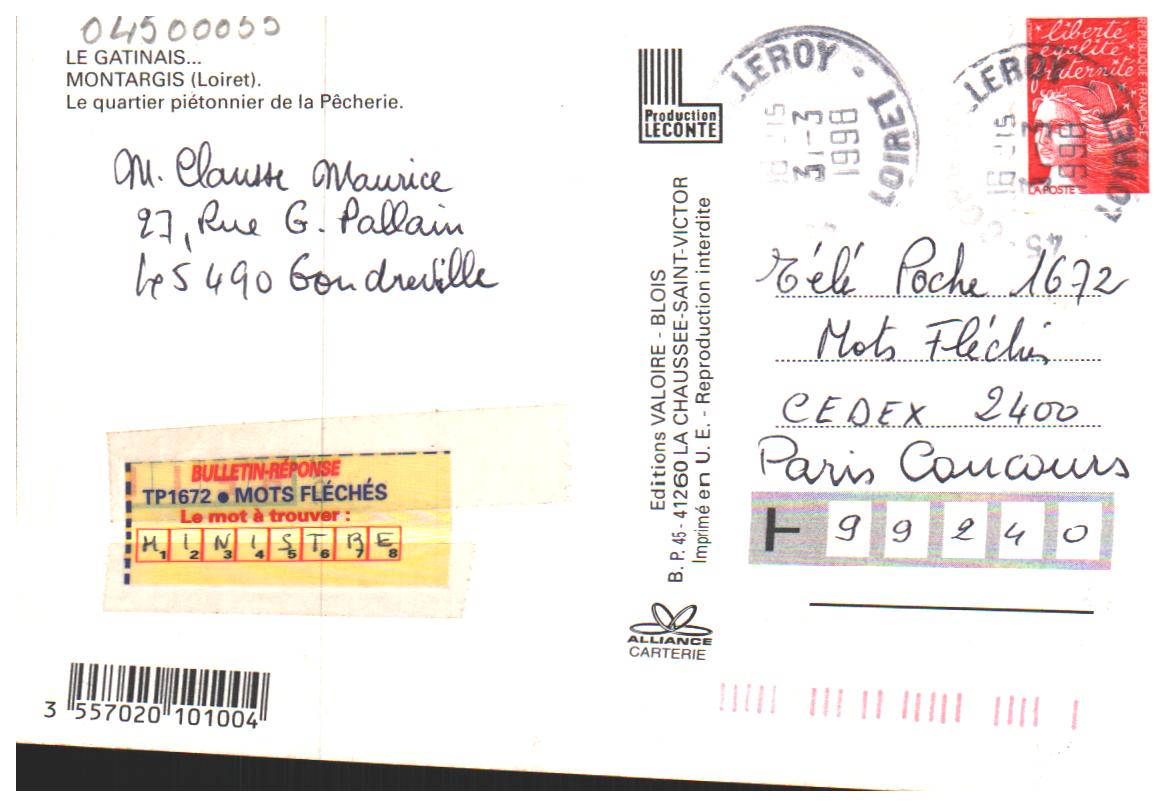 04500055
LE GATINAIS...
MONTARGIS (Loiret).
Le quartier piétonnier de la Pêcherie.
M. Clausse Maurice
27, Rue G. Pallain
45490 Gondreville
BULLETIN-RÉPONSE
TP1672 ● MOTS FLÉCHÉS
Le mot à trouver :
MINISTRE
1 2 3 4 5 6 7 8
3 557020 101004
Production
LECONTE
Editions VALOIRE - BLOIS
B. P. 45 - 41260 LA CHAUSSEE-SAINT-VICTOR
Imprimé en U. E. - Reproduction interdite
ALLIANCE
CARTERIE
LLEROY · LOIRET
31-3
1998
liberté
égalité
fraternité
RÉPUBLIQUE FRANÇAISE
LA POSTE
LLEROY
LOIRET
16-15
1998
45
Télé Poche 1672
Mots Fléchés
CEDEX 2400
Paris Concours
99240